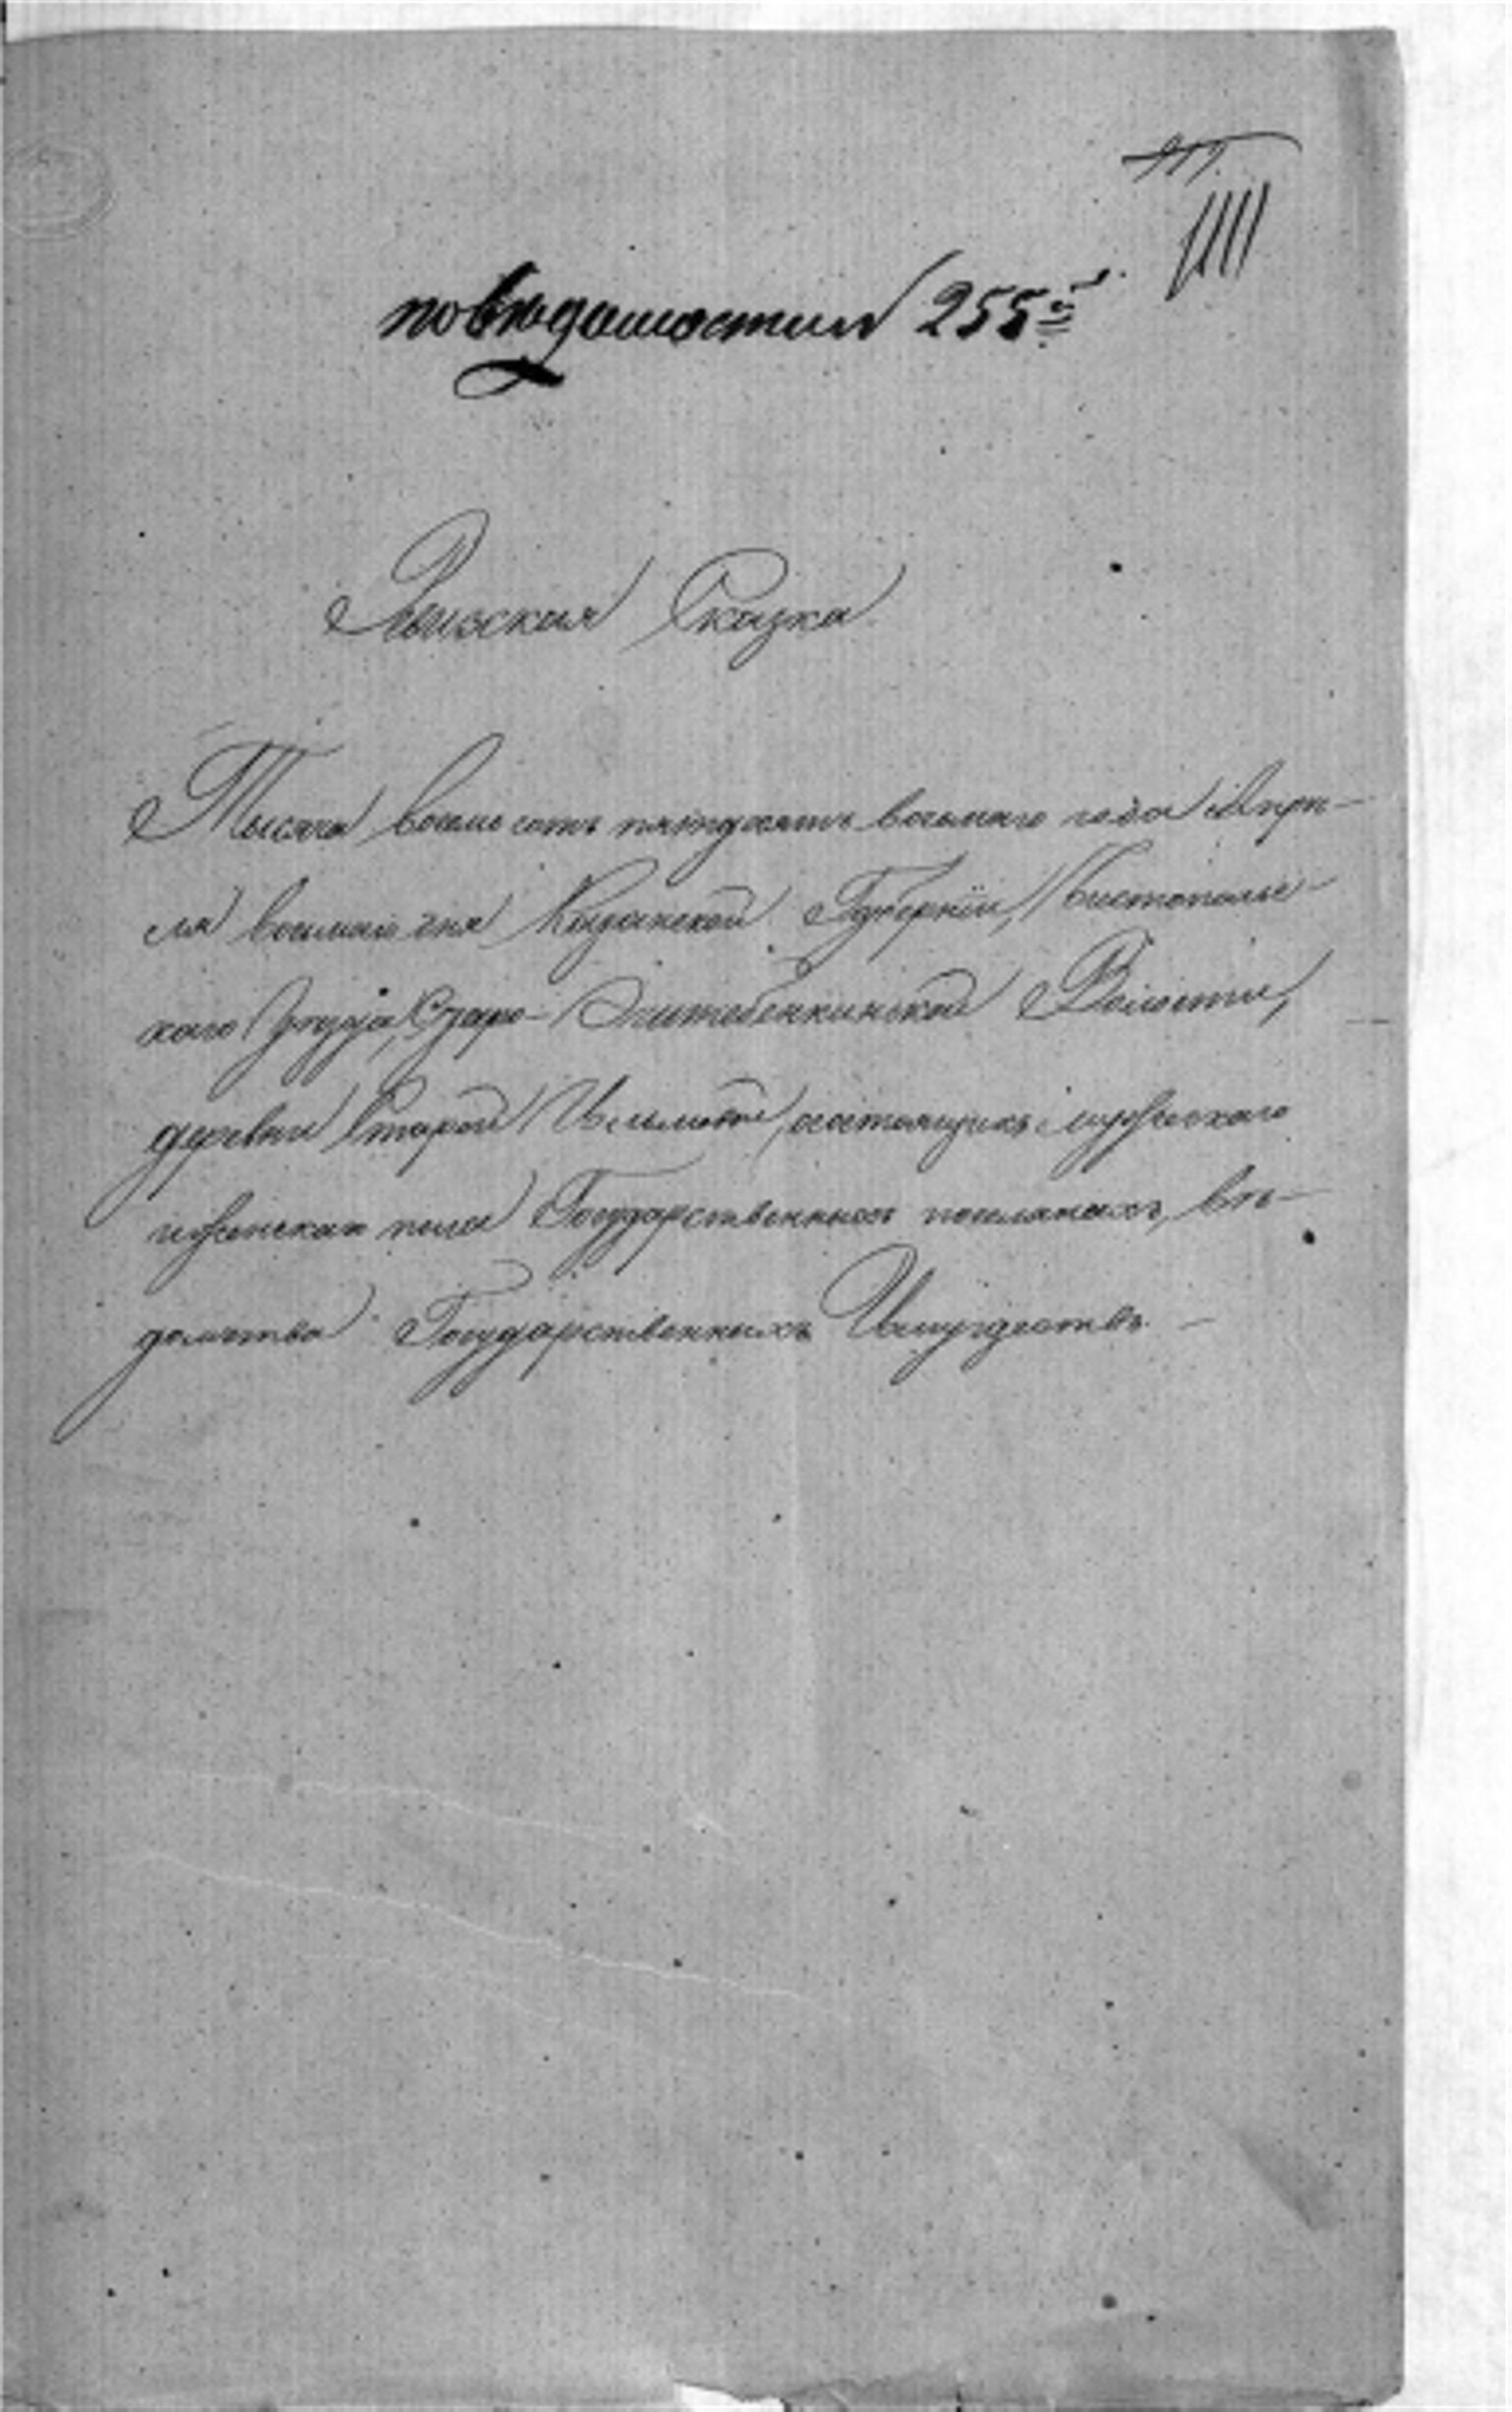 1111
по ведомости 255й
Ревизская Сказка
Тысяча восемь сотъ пятьдесятъ восьмаго года Апре-
ля восьмаго дня Казанской Губерніи, Чистопольс-
каго Уезда, Старо-
Волости,
деревни Старой о состоящихъ мужескаго
и женскаго пола Государственныхъ поселянахъ, ве-
домства Государственныхъ Имуществъ. –